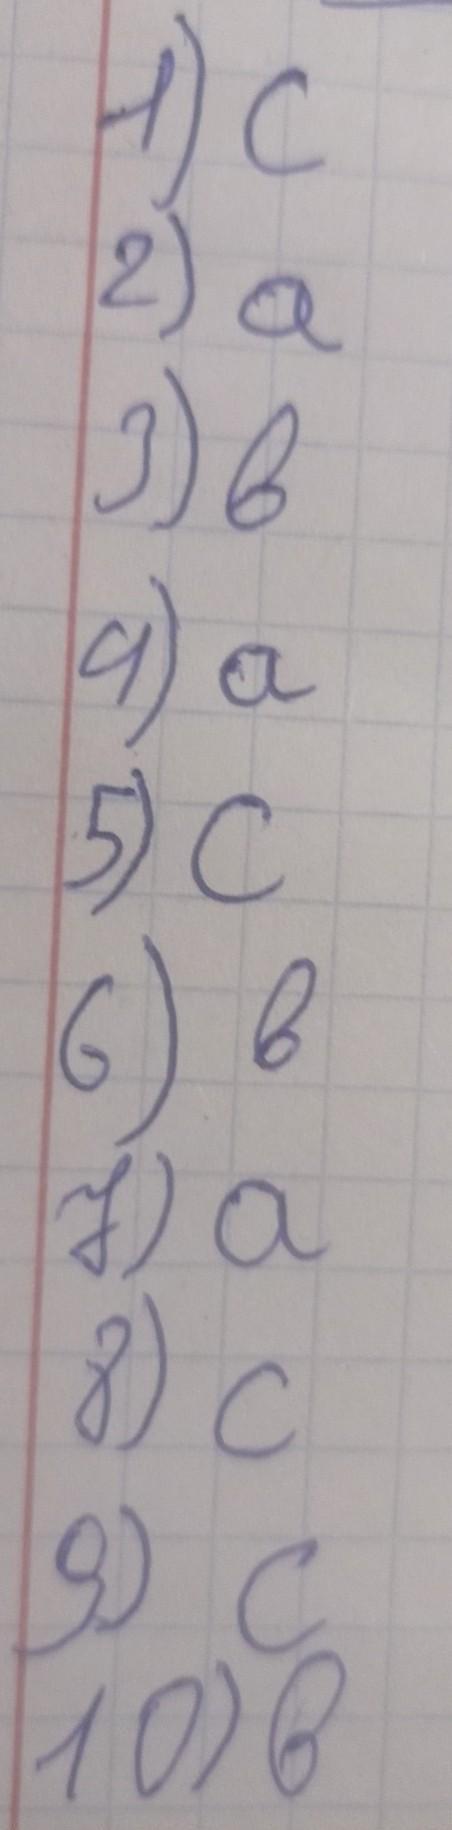 1) c
2) a
3) b
4) a
5) c
6) b
7) a
8) c
9) c
10) b